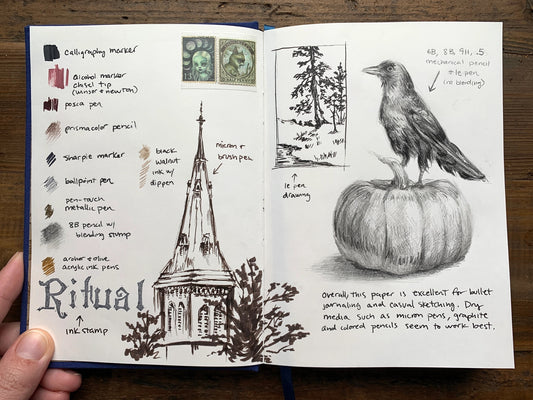 calligraphy marker
alcohol marker
chisel tip
(winsor & newton)
posca pen
prismacolor pencil
sharpie marker
ballpoint pen
pen-touch
metallic pen
8B pencil w/
blending stump
archer & olive
acrylic ink pens
Ritual
ink stamp
black
walnut
ink w/
dip pen
micron +
brush pen
le pen
drawing
6B, 8B, 9H, .5
mechanical pencil
+ le pen
(no blending)
Overall, this paper is excellent for bullet
journaling and casual sketching. Dry
media such as micron pens, graphite
and colored pencils seem to work best.